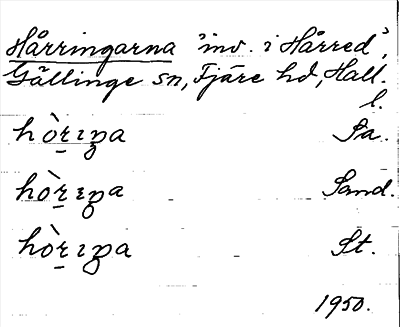 Hårringarna 'inv. i Hårred',
Gällinge sn, Fjäre hd, Hall.
l.
hòṟıŋa Sa.
hòṟıŋa Sand.
hòṟıŋa St.
1950.